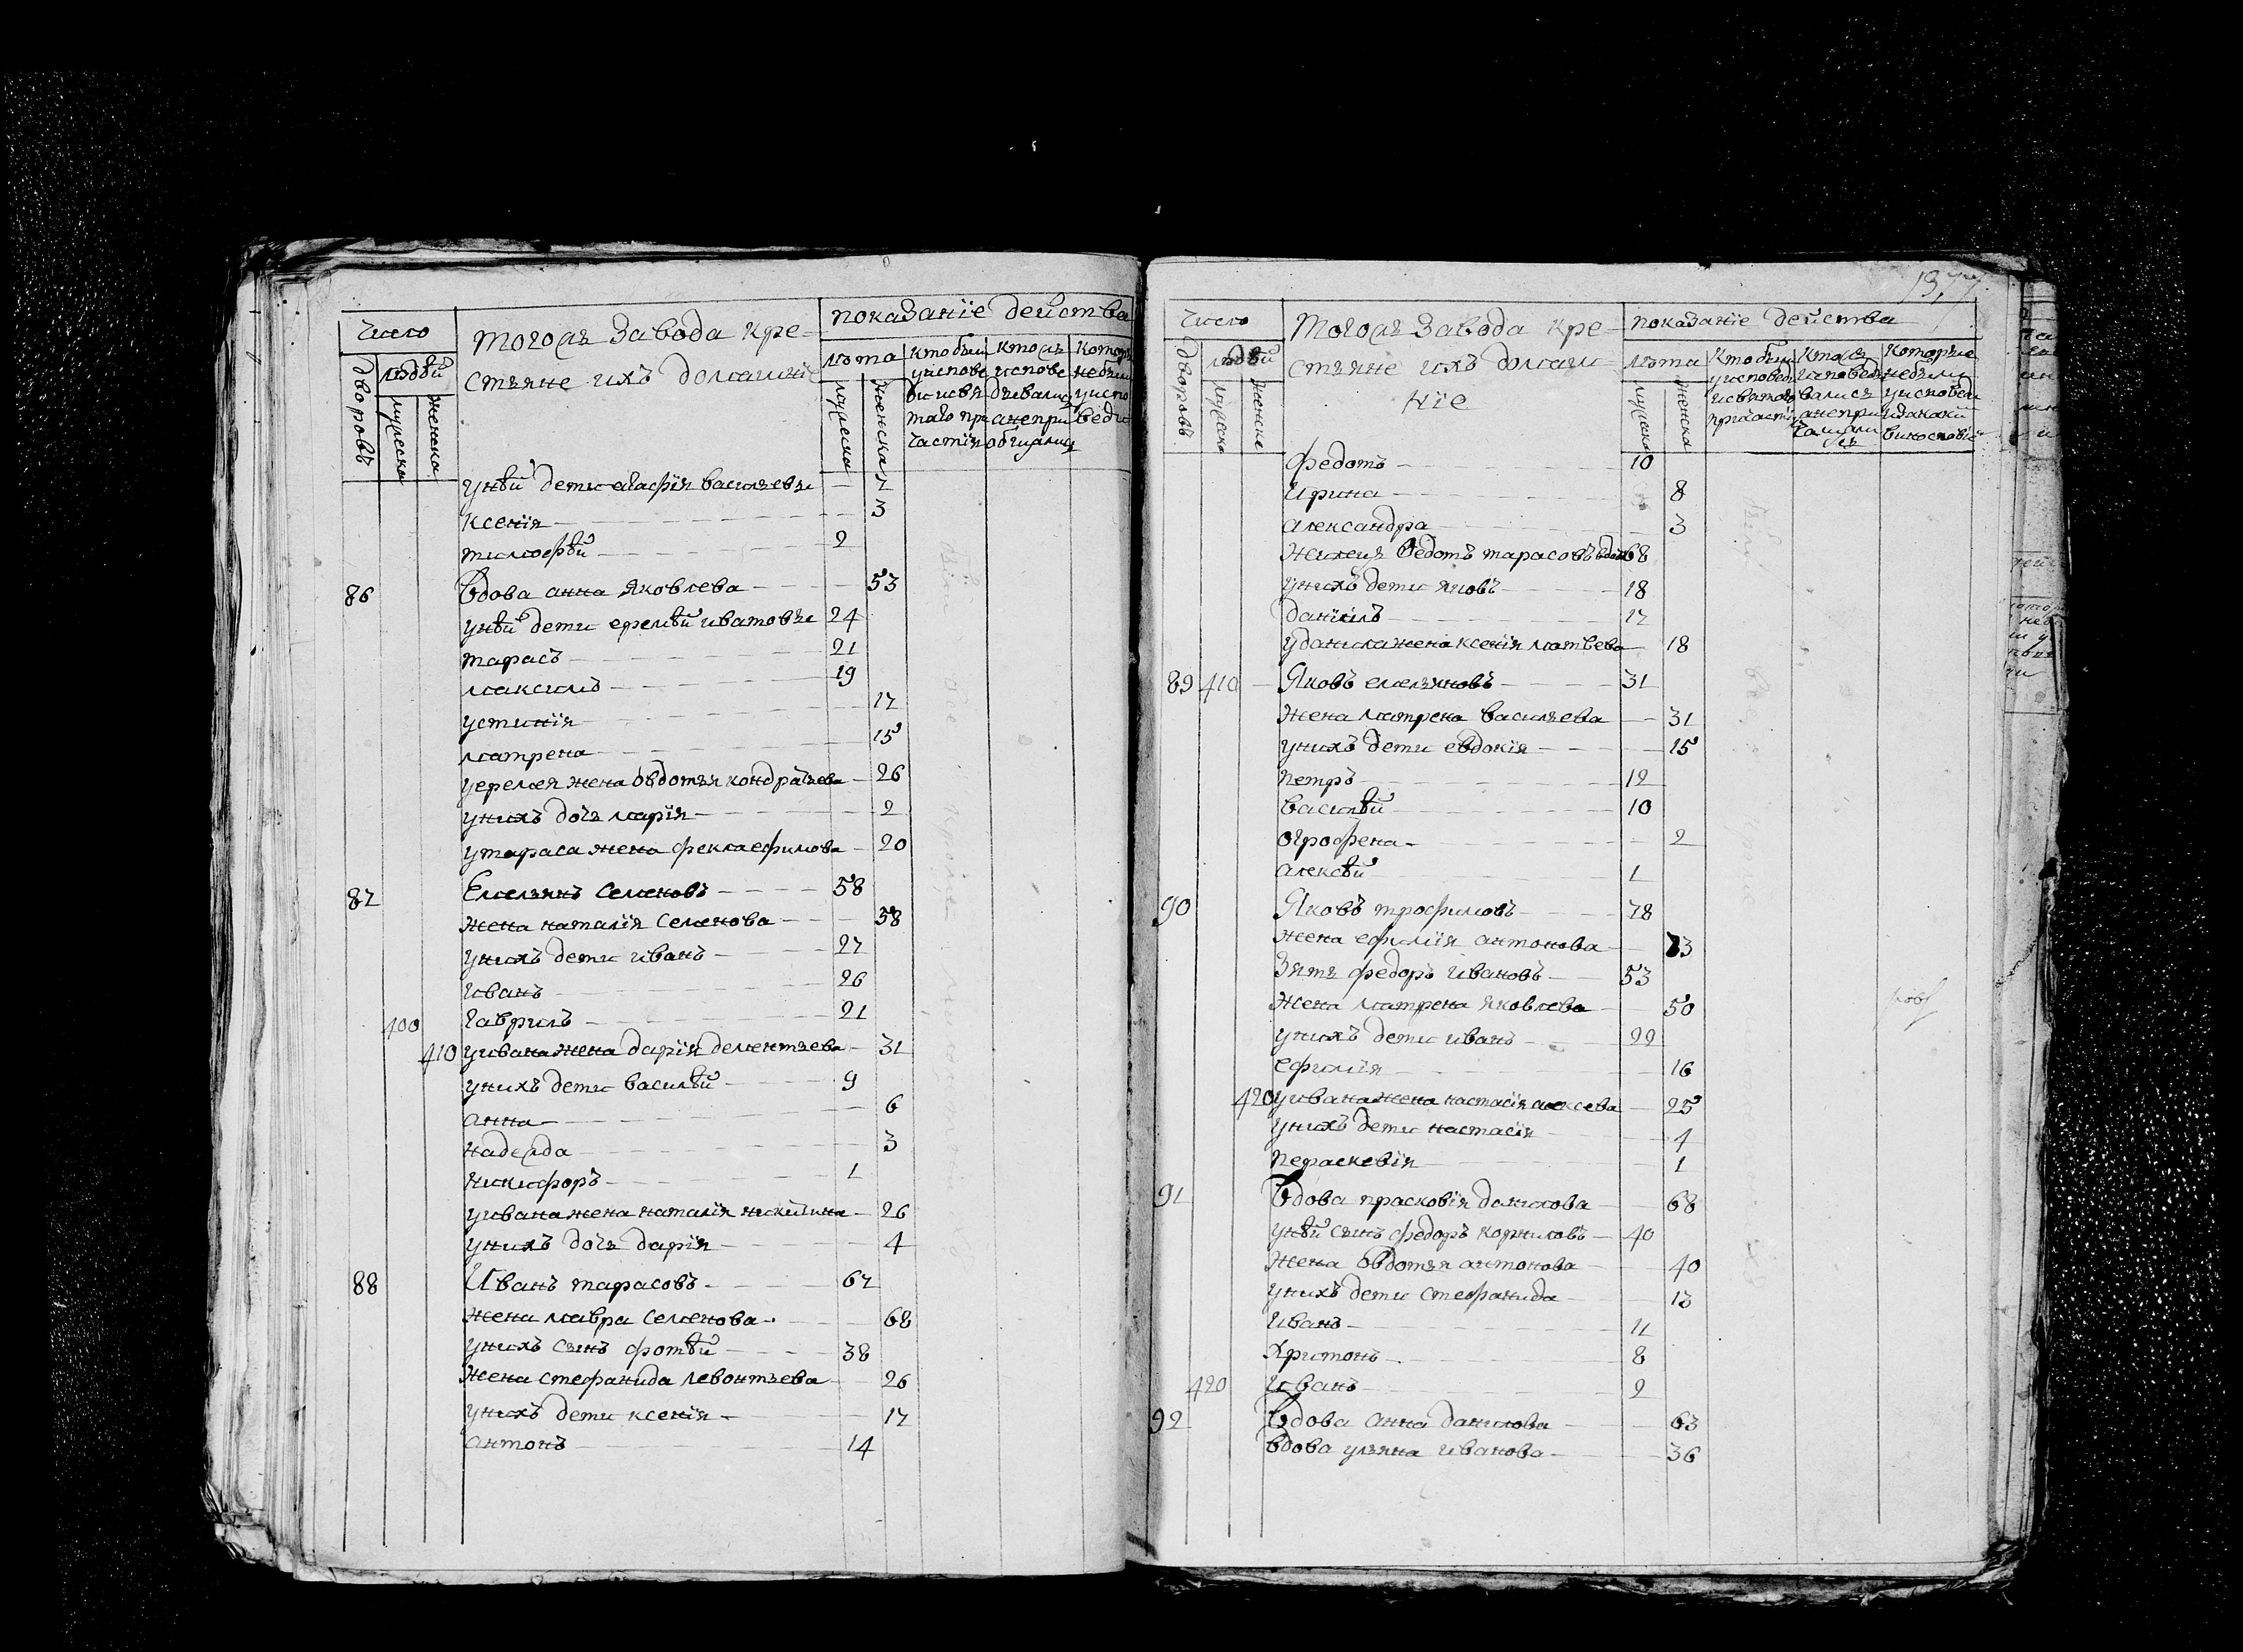 число
тогожъ завода кре-
стьяне ихъ домашніе
показаніе действа
дворовъ
людѣй
мужеска
женска
лѣта
мужеска
женска
кто были
уиспове
ди исвя
таго при
частія
ктожъ
испове
дывались
анепри
общались
которы
небыли
уиспо
веди
унѣй дети агафія васильевы 7
ксенія 3
тимофѣй 2
86 Вдова анна яковлева 53
унѣй дети еремѣй ивановы 24
тарасъ 21
максимъ 19
устинія 17
матрена 15
уеремея жена овдотья кондратьева 26
унихъ дочь марія 2
утараса жена фекла ефимова 20
87 Емельянъ семеновъ 58
жена наталія семенова 58
унихъ дети иванъ 27
иванъ 26
400 гаврилъ 21
410 уивана жена дарія дементьева 31
унихъ дети василѣй 9
анна 6
надежда 3
никифоръ 1
уивана жена наталія никитина 26
унихъ дочь дарія 4
88 Иванъ тарасовъ 67
жена мавра семенова 68
унихъ сынъ фотѣй 38
жена стефанида левонтьева 26
унихъ дети ксенія 17
антонъ 14
197
число
тогожъ завода кре-
стьяне ихъ домаш-
ніе
показаніе действа
дворовъ
людѣй
мужеска
женска
лѣта
мужеска
женска
кто были
уисповеди
исвятого
причастія
ктожъ
исповеды
вались
анепри
чащали
сь
которые
небыли
уисповеди
федотъ 10
ирина 8
александра 3
жилецъ Федотъ тарасовъ вдовъ 68
унихъ дети яковъ 18
данилъ 17
уданила жена ксенія матвева 18
89 410 Яковъ емельяновъ 31
жена матрена васильева 31
унихъ дети евдокія 15
петръ 12
василѣй 10
огрофена 2
алексѣй 1
90 Яковъ трофимовъ 78
жена ефимія антонова 73
зять федоръ ивановъ 53
жена матрена яковлева 50
унихъ дети иванъ 22
ефимія 16
420 уивана жена настасія алексева 25
унихъ дети настасія 4
пераскевія 1
91 Вдова прасковія данилова 68
унѣй сынъ федоръ корниловъ 40
жена овдотья антонова 40
унихъ дети стефанида 13
иванъ 11
Христонъ 8
420 иванъ 2
92 Вдова анна данилова 63
вдова ульяна иванова 36